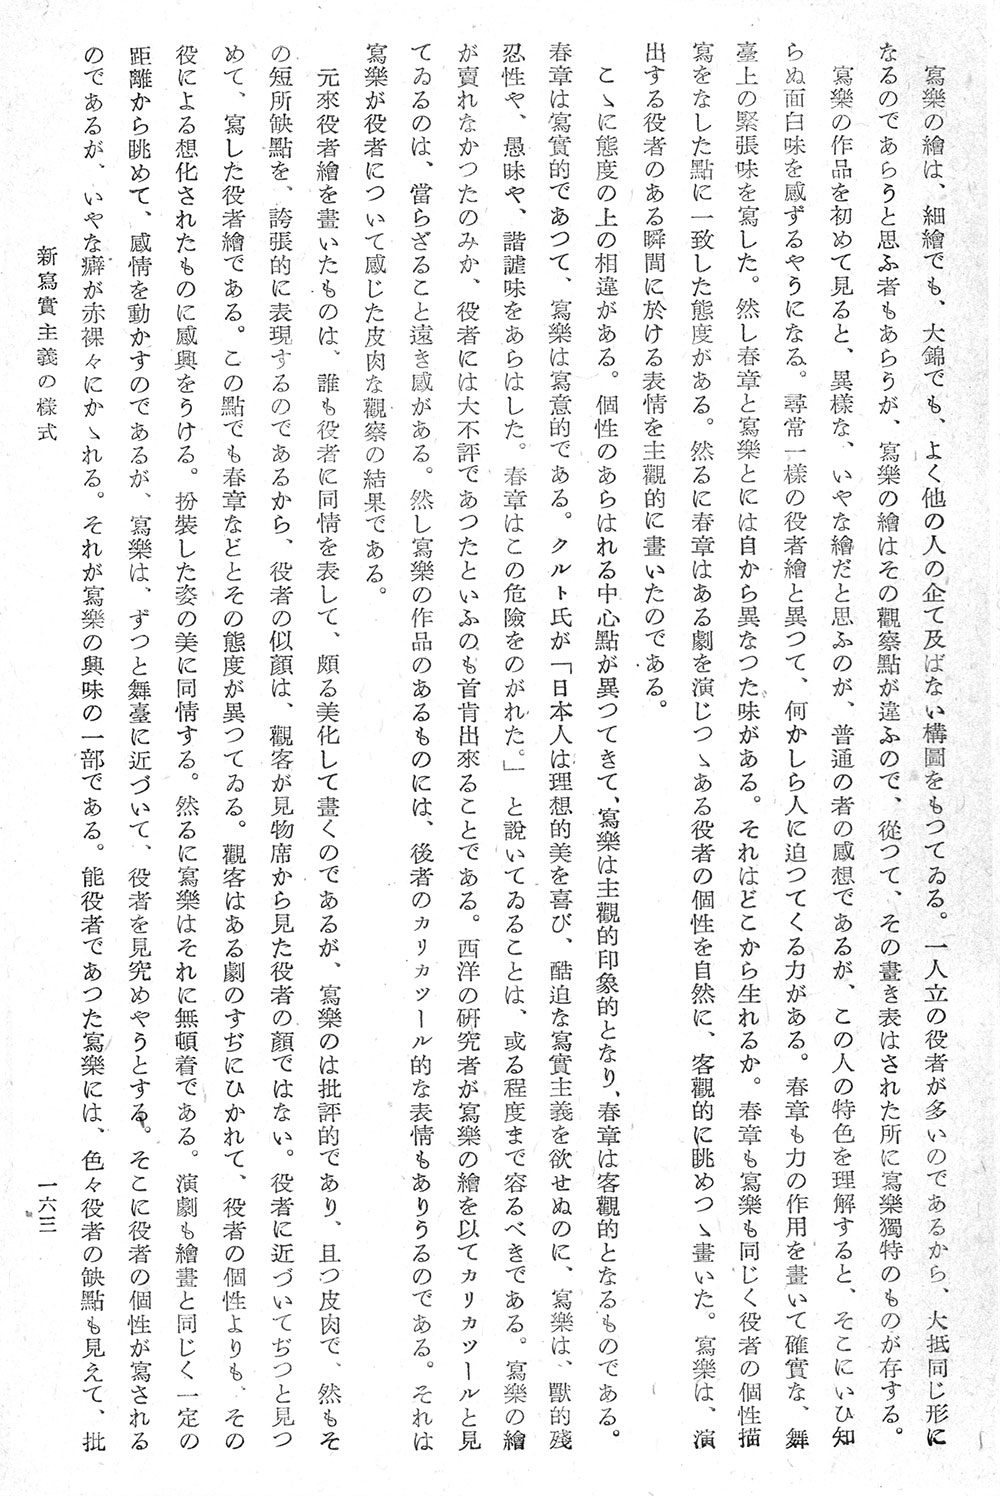 寫樂の繪は、細繪でも、大錦でも、よく他の人の企て及ばない構圖をもつてゐる。一人立の役者が多いのであるから、大抵同じ形に
なるのであらうと思ふ者もあらうが、寫樂の繪はその觀察點が違ふので、從つて、その畫き表はされた所に寫樂獨特のものが存する。
寫樂の作品を初めて見ると、異樣な、いやな繪だと思ふのが、普通の者の感想であるが、この人の特色を理解すると、そこにいひ知
らぬ面白味を感ずるやうになる。尋常一樣の役者繪と異つて、何かしら人に迫つてくる力がある。春章も力の作用を畫いて確實な、舞
臺上の緊張味を寫した。然し春章と寫樂とには自から異なつた味がある。それはどこから生れるか。春章も寫樂も同じく役者の個性描
寫をなした點に一致した態度がある。然るに春章はある劇を演じつゝある役者の個性を自然に、客觀的に眺めつゝ畫いた。寫樂は、演
出する役者のある瞬間に於ける表情を主觀的に畫いたのである。
こゝに態度の上の相違がある。個性のあらはれる中心點が異つてきて、寫樂は主觀的印象的となり、春章は客觀的となるものである。
春章は寫實的であつて、寫樂は寫意的である。クルト氏が「日本人は理想的美を喜び、酷迫な寫實主義を欲せぬのに、寫樂は、獸的殘
忍性や、愚昧や、諧謔味をあらはした。春章はこの危險をのがれた。」と說いてゐることは、或る程度まで容るべきである。寫樂の繪
が賣れなかつたのみか、役者には大不評であつたといふのも首肯出來ることである。西洋の硏究者が寫樂の繪を以てカリカツールと見
てゐるのは、當らざること遠き感がある。然し寫樂の作品のあるものには、後者のカリカツール的な表情もありうるのである。それは
寫樂が役者について感じた皮肉な觀察の結果である。
元來役者繪を畫いたものは、誰も役者に同情を表して、頗る美化して畫くのであるが、寫樂のは批評的であり、且つ皮肉で、然もそ
の短所缺點を、誇張的に表現するのであるから、役者の似顏は、觀客が見物席から見た役者の顏ではない。役者に近づいてぢつと見つ
めて、寫した役者繪である。この點でも春章などとその態度が異つてゐる。觀客はある劇のすぢにひかれて、役者の個性よりも、その
役による想化されたものに感興をうける。扮裝した姿の美に同情する。然るに寫樂はそれに無頓着である。演劇も繪畫と同じく一定の
距離から眺めて、感情を動かすのであるが、寫樂は、ずつと舞臺に近づいて、役者を見究めやうとする。そこに役者の個性が寫される
のであるが、いやな癖が赤裸々にかゝれる。それが寫樂の興味の一部である。能役者であつた寫樂には、色々役者の缺點も見えて、批
新寫實主義の樣式
一六三